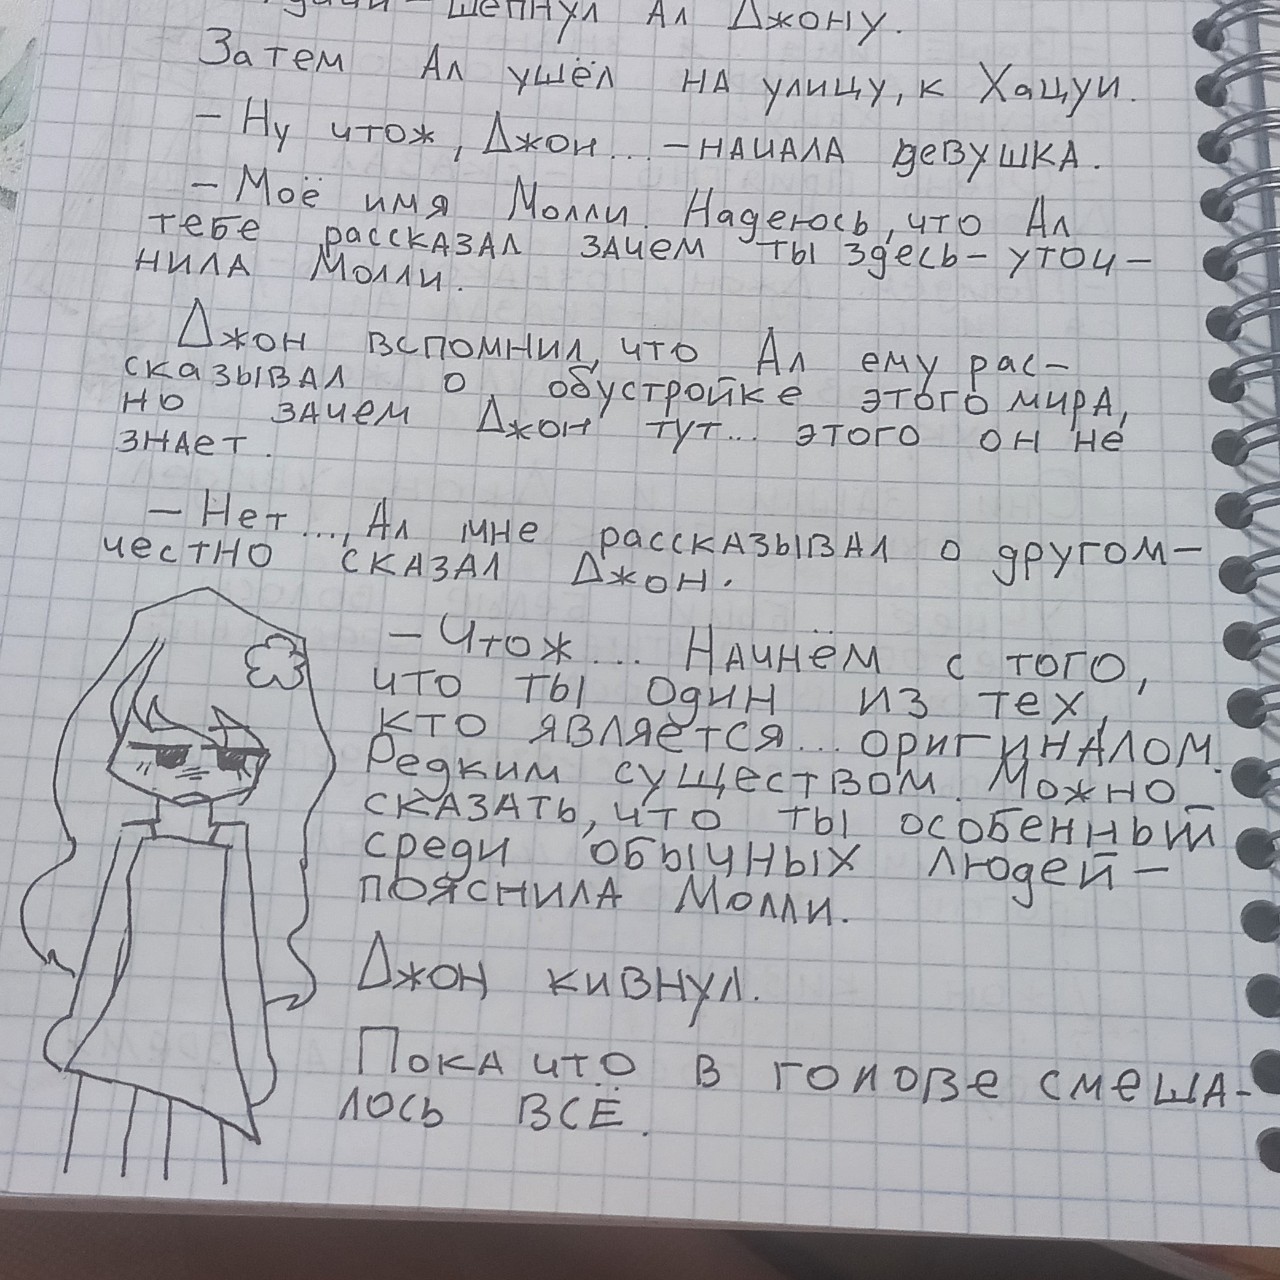 - шепнул Ал Джону.
Затем Ал ушёл на улицу, к Хацуи.
- Ну чтож, Джон... - начала девушка.
- Моё имя Молли. Надеюсь, что Ал
тебе рассказал зачем ты здесь - уточ-
нила Молли.
Джон вспомнил, что Ал ему рас-
сказывал о обустройке этого мира,
но зачем Джон тут... этого он не
знает.
- Нет..., Ал мне рассказывал о другом -
честно сказал Джон.
- Чтож... Начнём с того,
что ты один из тех,
кто является... оригиналом.
Редким существом. Можно
сказать, что ты особенный
среди обычных людей -
пояснила Молли.
Джон кивнул.
Пока что в голове смеша-
лось всё.